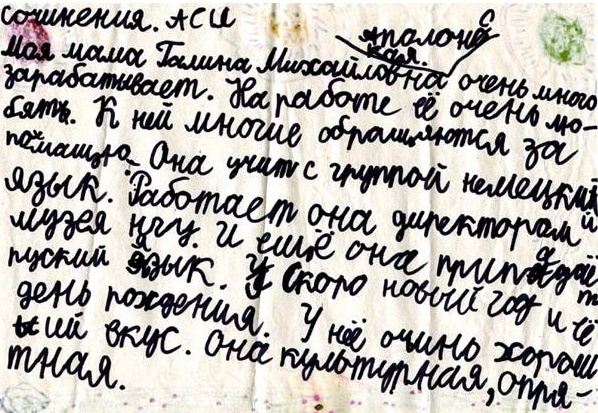 сочинения. АСИ
Аполонс
кая.
Моя мама Галина Михайловна очень много
зарабатывает. На работе её очень лю-
бять. К ней многие обращяются за
помащю. Она учит с группой немецкий
язык. Работает она директорам
музея нгу. И ещё она приподаёт
руский язык. У Скоро новый год и её
день рождения. У неё очинь хорош
ий вкус. Она культурная, опря-
тная.